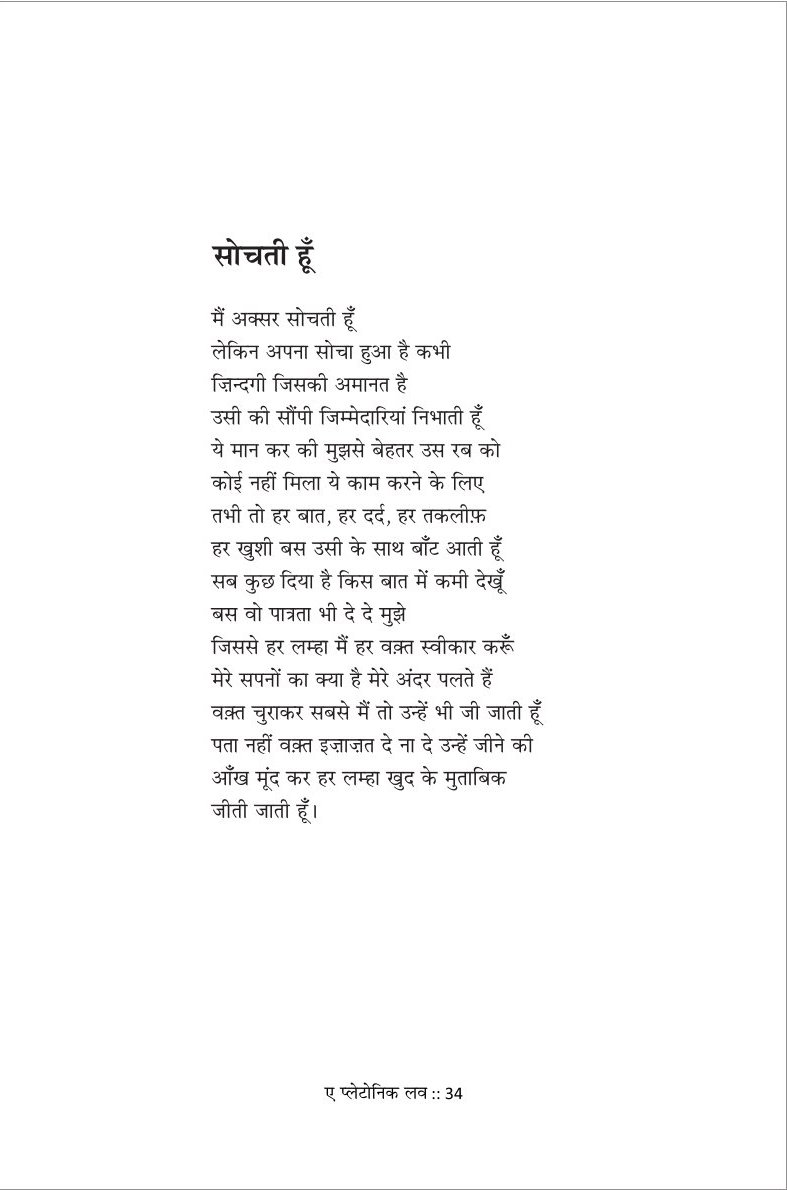 सोचती हूँ
मैं अक्सर सोचती हूँ
लेकिन अपना सोचा हुआ है कभी
ज़िन्दगी जिसकी अमानत है
उसी की सौंपी जिम्मेदारियां निभाती हूँ
ये मान कर की मुझसे बेहतर उस रब को
कोई नहीं मिला ये काम करने के लिए
तभी तो हर बात, हर दर्द, हर तकलीफ़
हर खुशी बस उसी के साथ बाँट आती हूँ
सब कुछ दिया है किस बात में कमी देखूँ
बस वो पात्रता भी दे दे मुझे
जिससे हर लम्हा मैं हर वक़्त स्वीकार करूँ
मेरे सपनों का क्या है मेरे अंदर पलते हैं
वक़्त चुराकर सबसे मैं तो उन्हें भी जी जाती हूँ
पता नहीं वक़्त इज़ाज़त दे ना दे उन्हें जीने की
आँख मूंद कर हर लम्हा खुद के मुताबिक
जीती जाती हूँ।
ए प्लेटोनिक लव :: 34